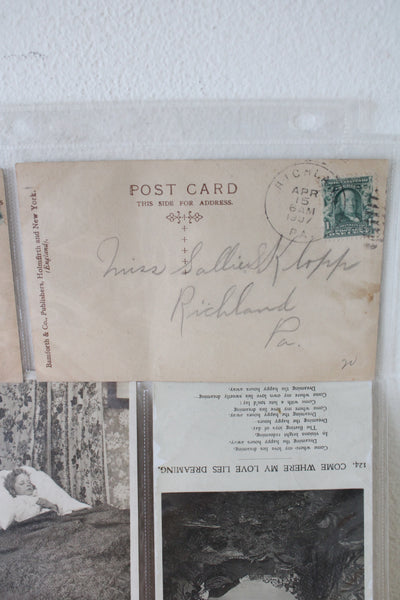 POST CARD
THIS SIDE FOR ADDRESS.
Bamforth & Co., Publishers, Holmfirth and New York.
(England).
APR
15
6 AM
1907
PA.
Miss Sallie Klopp
Richland
Pa.
124. COME WHERE MY LOVE LIES DREAMING.
Come where my love lies dreaming,
Dreaming the happy hours away,
In visions bright redeeming,
The fleeting joys of day
Dreaming the happy hours
Come where my love lies dreaming
Dreaming the happy hours away.
Come with a lute
Come where my own love lies sweetly dreaming
Dreaming the happy hours away.